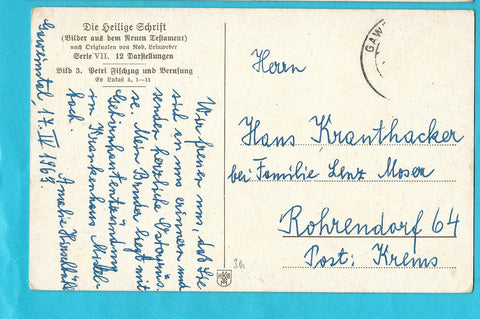 Die Heilige Schrift
(Bilder aus dem Neuen Testament)
nach Originalen von Rob. Leinweber
Serie VII. 12 Darstellungen
Bild 3. Petri Fischzug und Berufung
Ev Lukas 5, 1—11
Gaweinstal, 17. IV 1963
Wir freuen uns, daß Sie
sich an uns erinnern und
senden herzliche Ostergrüs-
se. Mein Bruder liegt mit
Gehirnhautentzündung
im Krankenhaus Mistel-
bach.
Amalie
GAW
Herrn
Hans Kranthacker
bei Familie Lenz Moser
Rohrendorf 64
Post: Krems